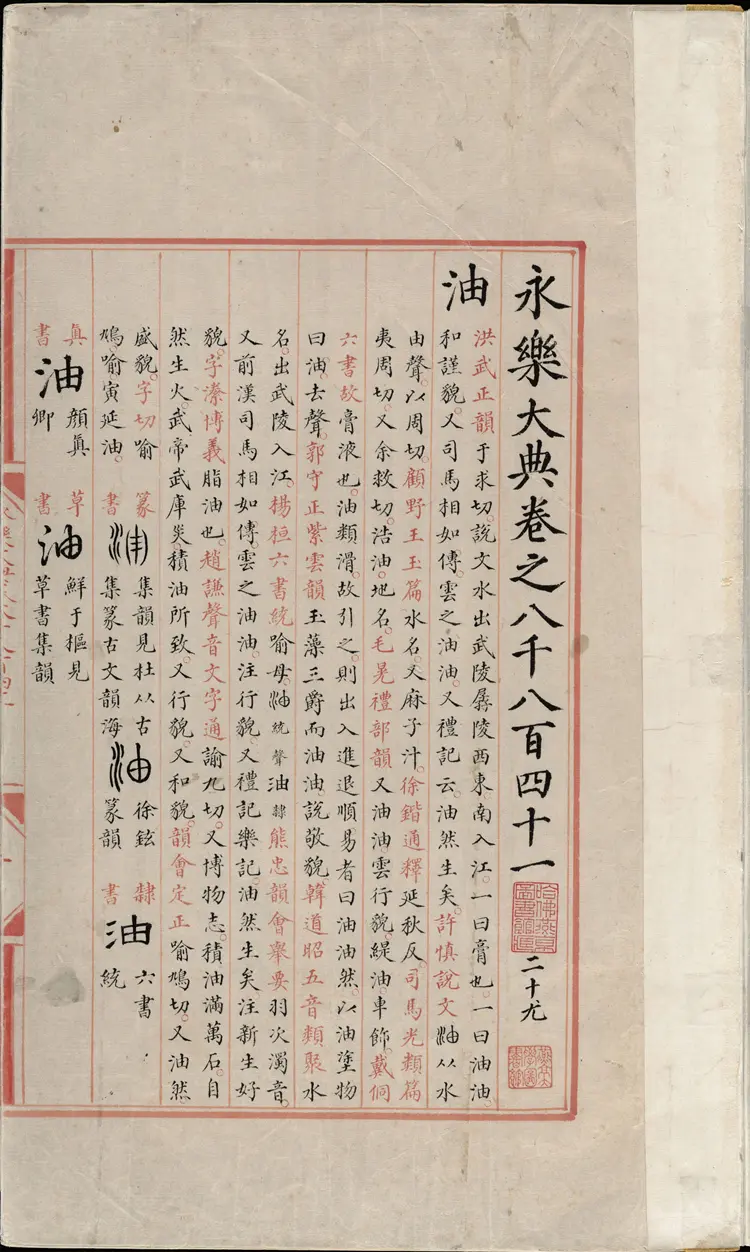 永樂大典卷之八千八百四十一
二十尤
油
洪武正韻于求切。說文水出武陵孱陵西東南入江。一曰膏也。一曰油油。
和謹貌。又司馬相如傳。雲之油油。又禮記云。油然生矣。許慎說文油从水
由聲。以周切。顧野王玉篇水名。又麻子汁。徐鍇通釋延秋反。司馬光類篇
夷周切。又余救切。浩油。地名。毛晃禮部韻又油油。雲行貌。緹油。車飾。戴侗
六書故膏液也。油類滑。故引之。則出入進退順易者曰油油然。以油塗物
曰油。去聲。郭守正紫雲韻玉藻三爵而油油。說敬貌。韓道昭五音類聚水
名。出武陵入江。楊桓六書統喻母。油統聲油隸熊忠韻會舉要羽次濁音。
又前漢司馬相如傳。雲之油油。注行貌。又禮記樂記。油然生矣。注新生好
貌。字潫博義脂油也。趙謙聲音文字通諭尤切。又博物志。積油滿萬石。自
然生火。武帝武庫災。積油所致。又行貌。又和貌。韻會定正喻鳩切。又油然。
盛貌。字切喻
鳩。喻寅延油。
篆書
油
集韻見杜从古
集篆古文韻海
油
徐鉉
篆韻
隸書
油
六書
統
真書
油
顏真
卿
草書
油
鮮于樞見
草書集韻